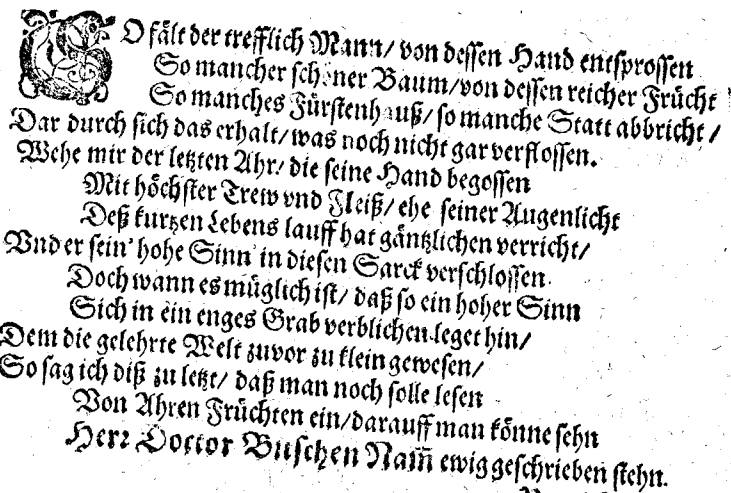 SO fält der trefflich Mann/ von dessen Hand entsprossen
So mancher schöner Baum/ von dessen reicher Frücht
So manches Fürstenhauß/ so manche Statt abbricht/
Dar durch sich das erhalt/ was noch nicht gar verflossen.
Wehe mir der letzten Ahr/ die seine Hand begossen
Mit höchster Trew vnd Fleiß/ ehe seiner Augenlicht
Deß kurtzen Lebens lauff hat gäntzlichen verricht/
Vnd er sein' hohe Sinn in diesen Sarck verschlossen.
Doch wann es müglich ist/ daß so ein hoher Sinn
Sich in ein enges Grab verblichen leget hin/
Dem die gelehrte Welt zuvor zu klein gewesen/
So sag ich diß zu letzt/ daß man noch solle lesen
Von Ahren Früchten ein/ darauff man könne sehn
Herr Doctor Buschen Nam̄ ewig geschrieben stehn.